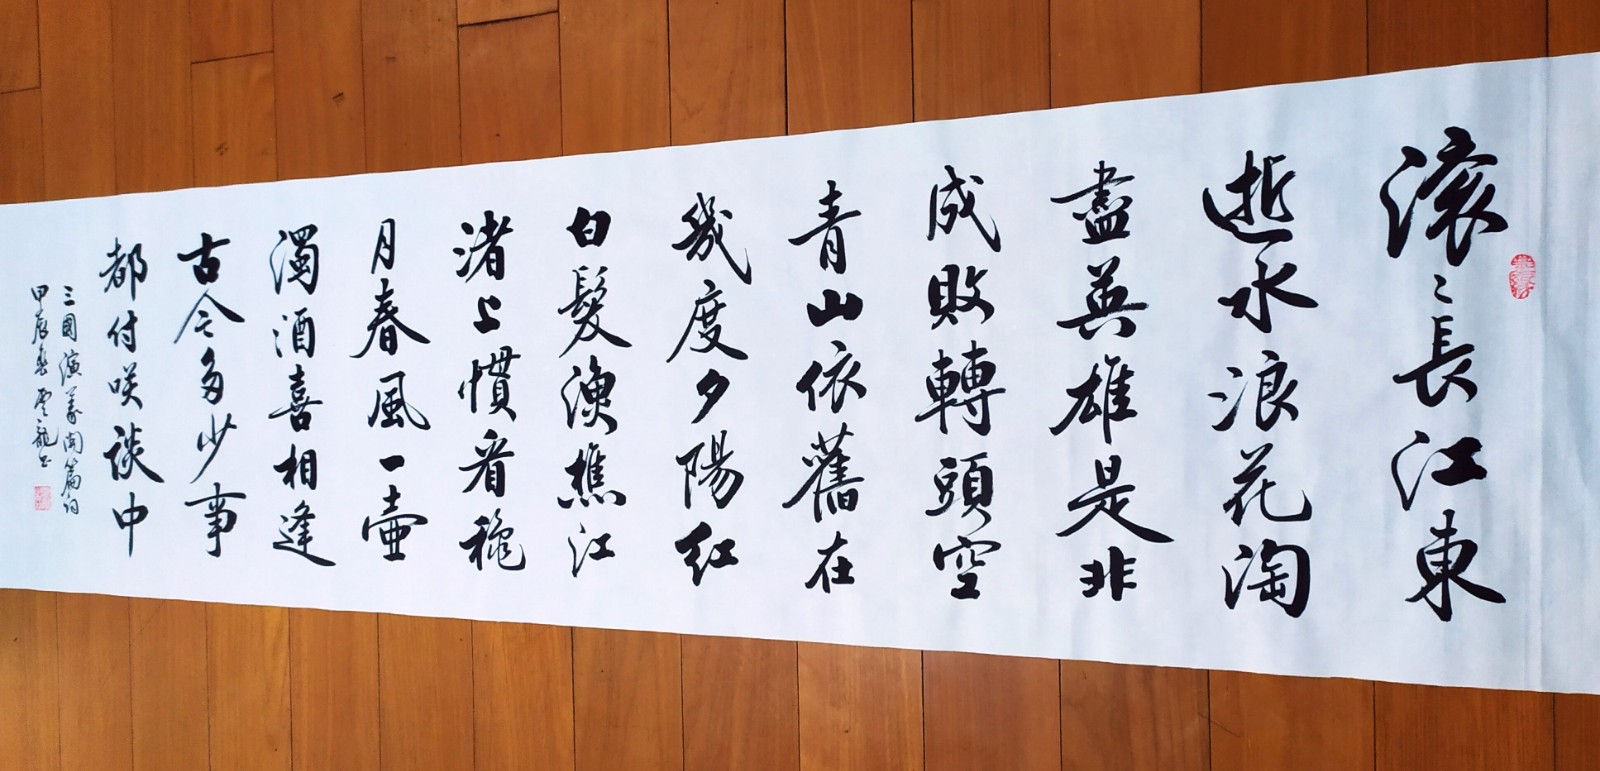 滚〻長江東
逝水浪花淘
盡英雄是非
成敗轉頭空
青山依舊在
幾度夕陽红
白髮漁樵江
渚上慣看穐
月春風一壷
濁酒喜相逢
古今多少事
都付咲談中
三國演義開篇词
甲辰雲龍书